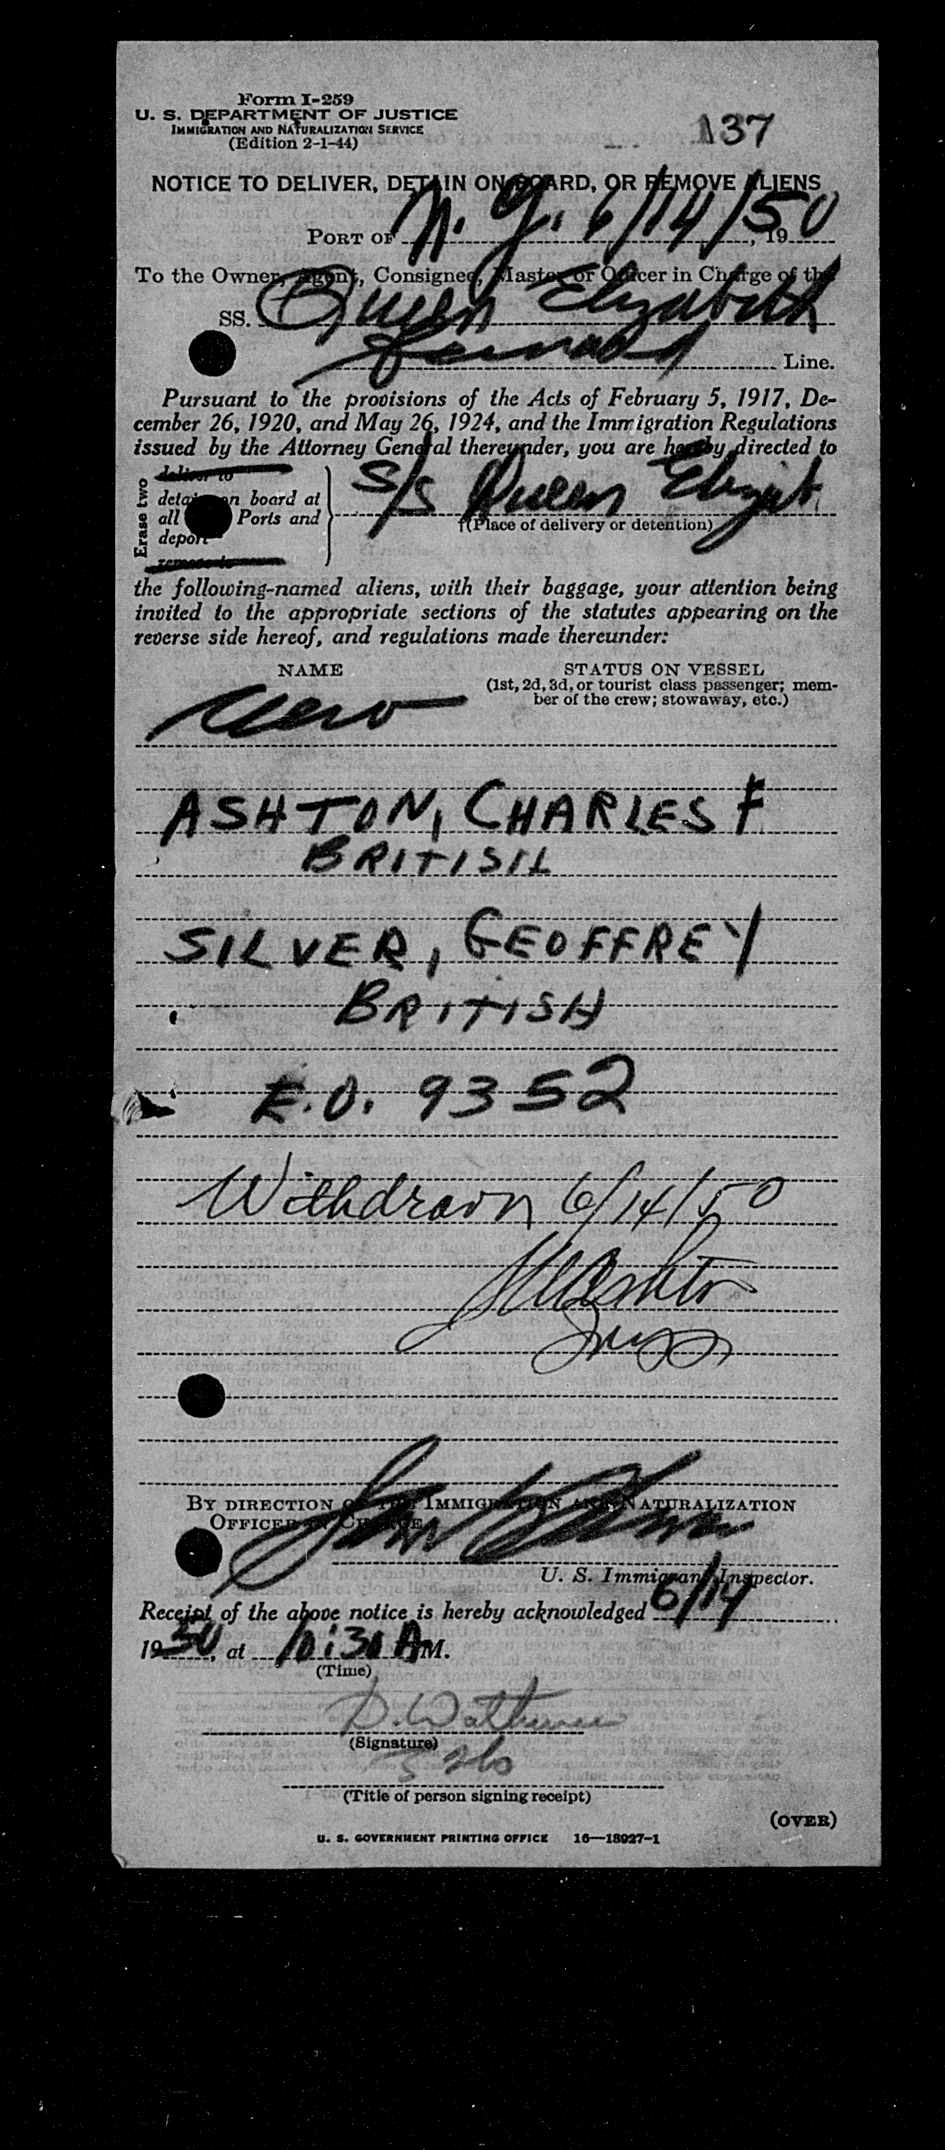 Form I-259
U. S. DEPARTMENT OF JUSTICE
IMMIGRATION AND NATURALIZATION SERVICE
(Edition 2-1-44)
137
NOTICE TO DELIVER, DETAIN ON BOARD, OR REMOVE ALIENS
PORT OF N. Y. 6/14/50, 19
To the Owner, Agent, Consignee, Master or Officer in Charge of the
SS. Queen Elizabeth
Line.
Pursuant to the provisions of the Acts of February 5, 1917, De-
cember 26, 1920, and May 26, 1924, and the Immigration Regulations
issued by the Attorney General thereunder, you are hereby directed to
Erase two
deliver to
detain on board at
all Ports and
deport
remove to
S/S Queen Elizabt
(Place of delivery or detention)
the following-named aliens, with their baggage, your attention being
invited to the appropriate sections of the statutes appearing on the
reverse side hereof, and regulations made thereunder:
NAME
STATUS ON VESSEL
(1st, 2d, 3d, or tourist class passenger; mem-
ber of the crew; stowaway, etc.)
Crew
ASHTON, CHARLES F
BRITISH
SILVER, GEOFFREY
BRITISH
E.O. 9352
Withdrawn 6/14/50
BY DIRECTION OF THE IMMIGRATION AND NATURALIZATION
OFFICER IN CHARGE
U. S. Immigrant Inspector.
Receipt of the above notice is hereby acknowledged 6/14
1950, at 10:30 A M.
(Time)
(Signature)
(Title of person signing receipt)
(OVER)
U. S. GOVERNMENT PRINTING OFFICE 16—18927-1